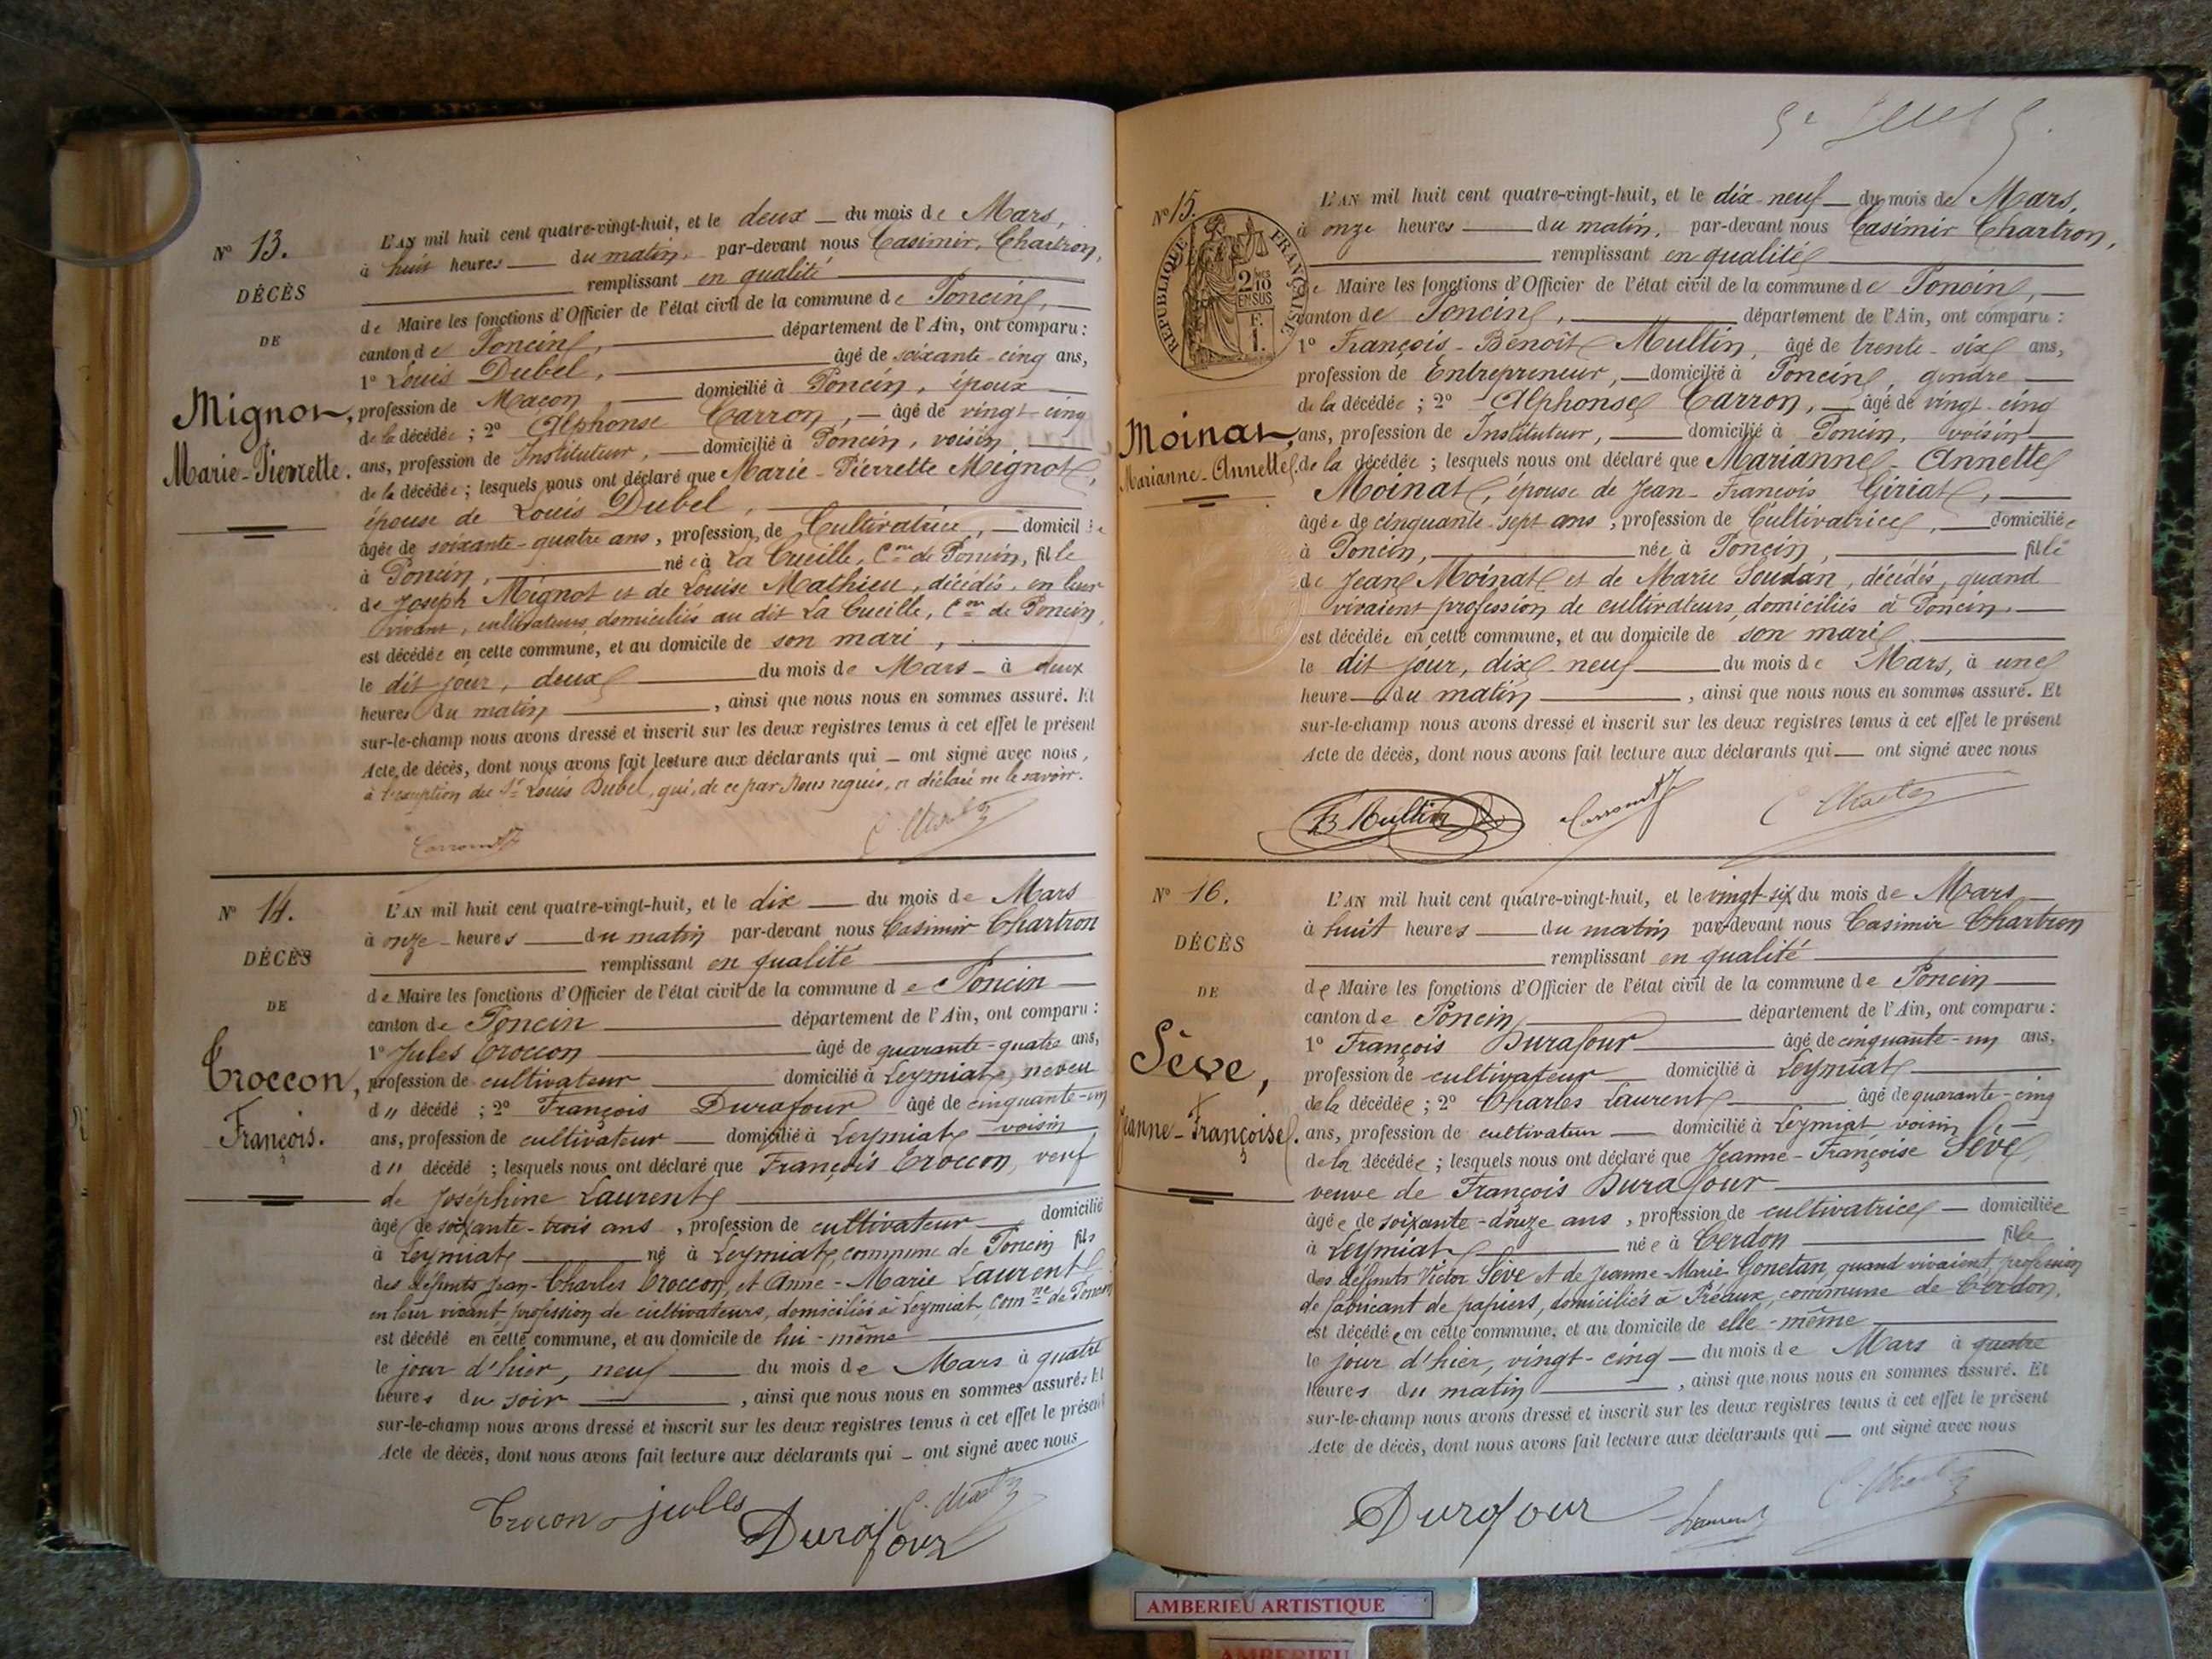 N° 13.
DÉCÈS
DE
Mignot,
Marie-Pierrette.
L'AN mil huit cent quatre-vingt-huit, et le deux — du mois de Mars,
à huit heures — du matin, par-devant nous Casimir Chartron,
remplissant en qualité
de Maire les fonctions d'Officier de l'état civil de la commune de Poncin,
canton de Poncin, département de l'Ain, ont comparu :
1° Louis Dubel, âgé de soixante-cinq ans,
profession de Maçon, — domicilié à Poncin, époux
de la décédée ; 2° Alphonse Carron, — âgé de vingt-cinq
ans, profession de Instituteur, — domicilié à Poncin, voisin
de la décédée ; lesquels nous ont déclaré que Marie-Pierrette Mignot,
épouse de Louis Dubel,
âgée de soixante-quatre ans, profession de Cultivatrice, — domicil
à Poncin, née à La Cueille, Cne de Poncin, fille
de Joseph Mignot et de Louise Mathieu, décédés, en leur
vivant, cultivateurs domiciliés au dit La Cueille, Cne de Poncin,
est décédée en cette commune, et au domicile de son mari,
le dit jour, deux du mois de Mars — à deux
heures du matin, ainsi que nous nous en sommes assuré. Et
sur-le-champ nous avons dressé et inscrit sur les deux registres tenus à cet effet le présent
Acte de décès, dont nous avons fait lecture aux déclarants qui — ont signé avec nous,
à l'exception du Sr Louis Dubel, qui, de ce par Nous requis, a déclaré ne le savoir.
N° 14.
DÉCÈS
DE
Croccon,
François.
L'AN mil huit cent quatre-vingt-huit, et le dix — du mois de Mars
à onze heures — du matin par-devant nous Casimir Chartron
remplissant en qualité
de Maire les fonctions d'Officier de l'état civil de la commune de Poncin
canton de Poncin département de l'Ain, ont comparu :
1° Jules Croccon âgé de quarante-quatre ans,
profession de cultivateur domicilié à Leymiat, neveu
d" décédé ; 2° François Durafour âgé de cinquante-un
ans, profession de cultivateur — domicilié à Leymiat voisin
d" décédé ; lesquels nous ont déclaré que François Croccon, veuf
de Joséphine Laurent
âgé de soixante-trois ans, profession de cultivateur domicilié
à Leymiat né à Leymiat, commune de Poncin fils
des défunts Jean-Charles Croccon, et Anne-Marie Laurent
en leur vivant profession de cultivateurs, domiciliés à Leymiat, Comne de Poncin
est décédé en cette commune, et au domicile de lui-même
le jour d'hier, neuf — du mois de Mars à quatre
heures du soir, ainsi que nous nous en sommes assuré. Et
sur-le-champ nous avons dressé et inscrit sur les deux registres tenus à cet effet le présent
Acte de décès, dont nous avons fait lecture aux déclarants qui — ont signé avec nous
Crocon jules
Durafour
N° 15.
RÉPUBLIQUE FRANÇAISE
2 10
EN SUS
F.
1.
Moinat,
Marianne-Annette
L'AN mil huit cent quatre-vingt-huit, et le dix-neuf — du mois de Mars,
à onze heures — du matin, par-devant nous Casimir Chartron,
remplissant en qualité
de Maire les fonctions d'Officier de l'état civil de la commune de Poncin,
canton de Poncin, département de l'Ain, ont comparu :
1° François-Benoît Multin, âgé de trente-six ans,
profession de Entrepreneur, — domicilié à Poncin, gendre
de la décédée ; 2° Alphonse Carron, — âgé de vingt-cinq
ans, profession de Instituteur, — domicilié à Poncin, voisin
de la décédée ; lesquels nous ont déclaré que Marianne-Annette
Moinat, épouse de Jean-François Giriat,
âgée de cinquante-sept ans, profession de Cultivatrice, domiciliée
à Poncin, née à Poncin, fille
de Jean Moinat et de Marie Soudan, décédés, quand
vivaient profession de cultivateurs, domiciliés à Poncin.
est décédée en cette commune, et au domicile de son mari,
le dit jour, dix-neuf du mois de Mars, à une
heure — du matin, ainsi que nous nous en sommes assuré. Et
sur-le-champ nous avons dressé et inscrit sur les deux registres tenus à cet effet le présent
Acte de décès, dont nous avons fait lecture aux déclarants qui — ont signé avec nous
B Multin
N° 16.
DÉCÈS
DE
Sève,
Jeanne-Françoise.
L'AN mil huit cent quatre-vingt-huit, et le vingt-six du mois de Mars
à huit heures — du matin par-devant nous Casimir Chartron
remplissant en qualité
de Maire les fonctions d'Officier de l'état civil de la commune de Poncin
canton de Poncin département de l'Ain, ont comparu :
1° François Durafour âgé de cinquante-un ans,
profession de cultivateur — domicilié à Leymiat
de la décédée ; 2° Charles Laurent âgé de quarante-cinq
ans, profession de cultivateur — domicilié à Leymiat voisin
de la décédée ; lesquels nous ont déclaré que Jeanne-Françoise Sève
veuve de François Durafour
âgée de soixante-douze ans, profession de cultivatrice — domiciliée
à Leymiat née à Cerdon fille
des défunts Victor Sève et de Jeanne-Marie Gonetan, quand vivaient, profession
de fabricant de papiers, domiciliés à Préaux, commune de Cerdon,
est décédée en cette commune, et au domicile de elle-même
le jour d'hier, vingt-cinq — du mois de Mars à quatre
heures du matin, ainsi que nous nous en sommes assuré. Et
sur-le-champ nous avons dressé et inscrit sur les deux registres tenus à cet effet le présent
Acte de décès, dont nous avons fait lecture aux déclarants qui — ont signé avec nous
Durafour Laurent
AMBERIEU ARTISTIQUE
AMBERIEU